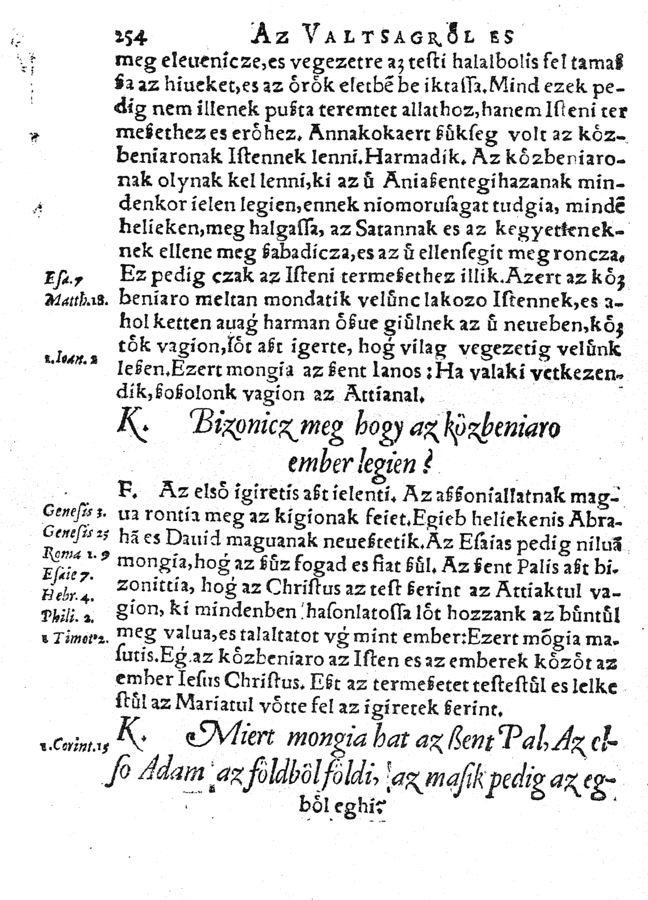 254 AZ VALTSAGRỏL ES
meg eleuenicze,es vegezetre aʒ testi halalbolis fel tamaß
ßa az hiueket,es az ỏrỏk eletbē be iktaſſa.Mind ezek pe-
dig nem illenek pußta teremtet allathoz,hanem Iſteni ter
meßethez es erỏhez. Annakokaert ßůkſeg volt az kỏz-
beniaronak Iſtennek lenni.Harmadik. Az kỏzbeniaro-
nak olynak kel lenni,ki az ů Aniaßentegihazanak min-
denkor ielen legien,ennek niomoruſagat tudgia, mindē
helieken,meg halgaſſa, az Satannak es az kegyettenek-
nek ellene meg ßabadicza,es az ů ellenſegit meg roncza.
Eſa.7 Ez pedig czak az Iſteni termeßethez illik.Azert az kỏʒ
Matth.18. beniaro meltan mondatik velůnc lakozo Iſtennek,es a-
hol ketten auaǵ harman ỏßue giůlnek az ů neueben,kỏʒ
tỏk vagion,ſỏt aßt igerte, hoǵ vilag vegezetig velůnk
1.Ioan.2 leßen.Ezert mongia az ßent Ianos:Ha valaki vetkezen-
dik,ßoßolonk vagion az Attianal.
K. Bizonicz meg hogy az kỏzbeniaro
ember legien?
F. Az elsỏ igiretis aßt ielenti. Az aßßoniallatnak mag-
Geneſis 3. ua rontia meg az kigionak feiet.Egieb heliekenis Abra-
Geneſis 25 hā es Dauid maguanak neueßtetik.Az Eſaias pedig niluā
Roma 1.9 mongia,hoǵ az ßůz fogad es fiat ßůl. Az ßent Palis aßt bi-
Eſaie 7. zonittia, hoǵ az Chriſtus az teſt ßerint az Attiaktul va-
Hebr.4. gion, ki mindenben haſonlatoſſa lỏt hozzank az bůntůl
Phili. 2. meg valua,es talaltatot vǵ mint ember:Ezert mōgia ma-
1 Timot 2. ſutis.Eǵ az kỏzbeniaro az Iſten es az emberek kỏzỏt az
ember Ieſus Chriſtus. Eßt az termeßetet teſteſtůl es lelke
ſtůl az Mariatul vỏtte fel az igiretek ßerint.
1.Corint.15 K. Miert mongia hat az ßent Pal, Az el-
ſo Adam az fỏldbỏl fỏldi, az maſik pedig az eg-
bỏl eghi?